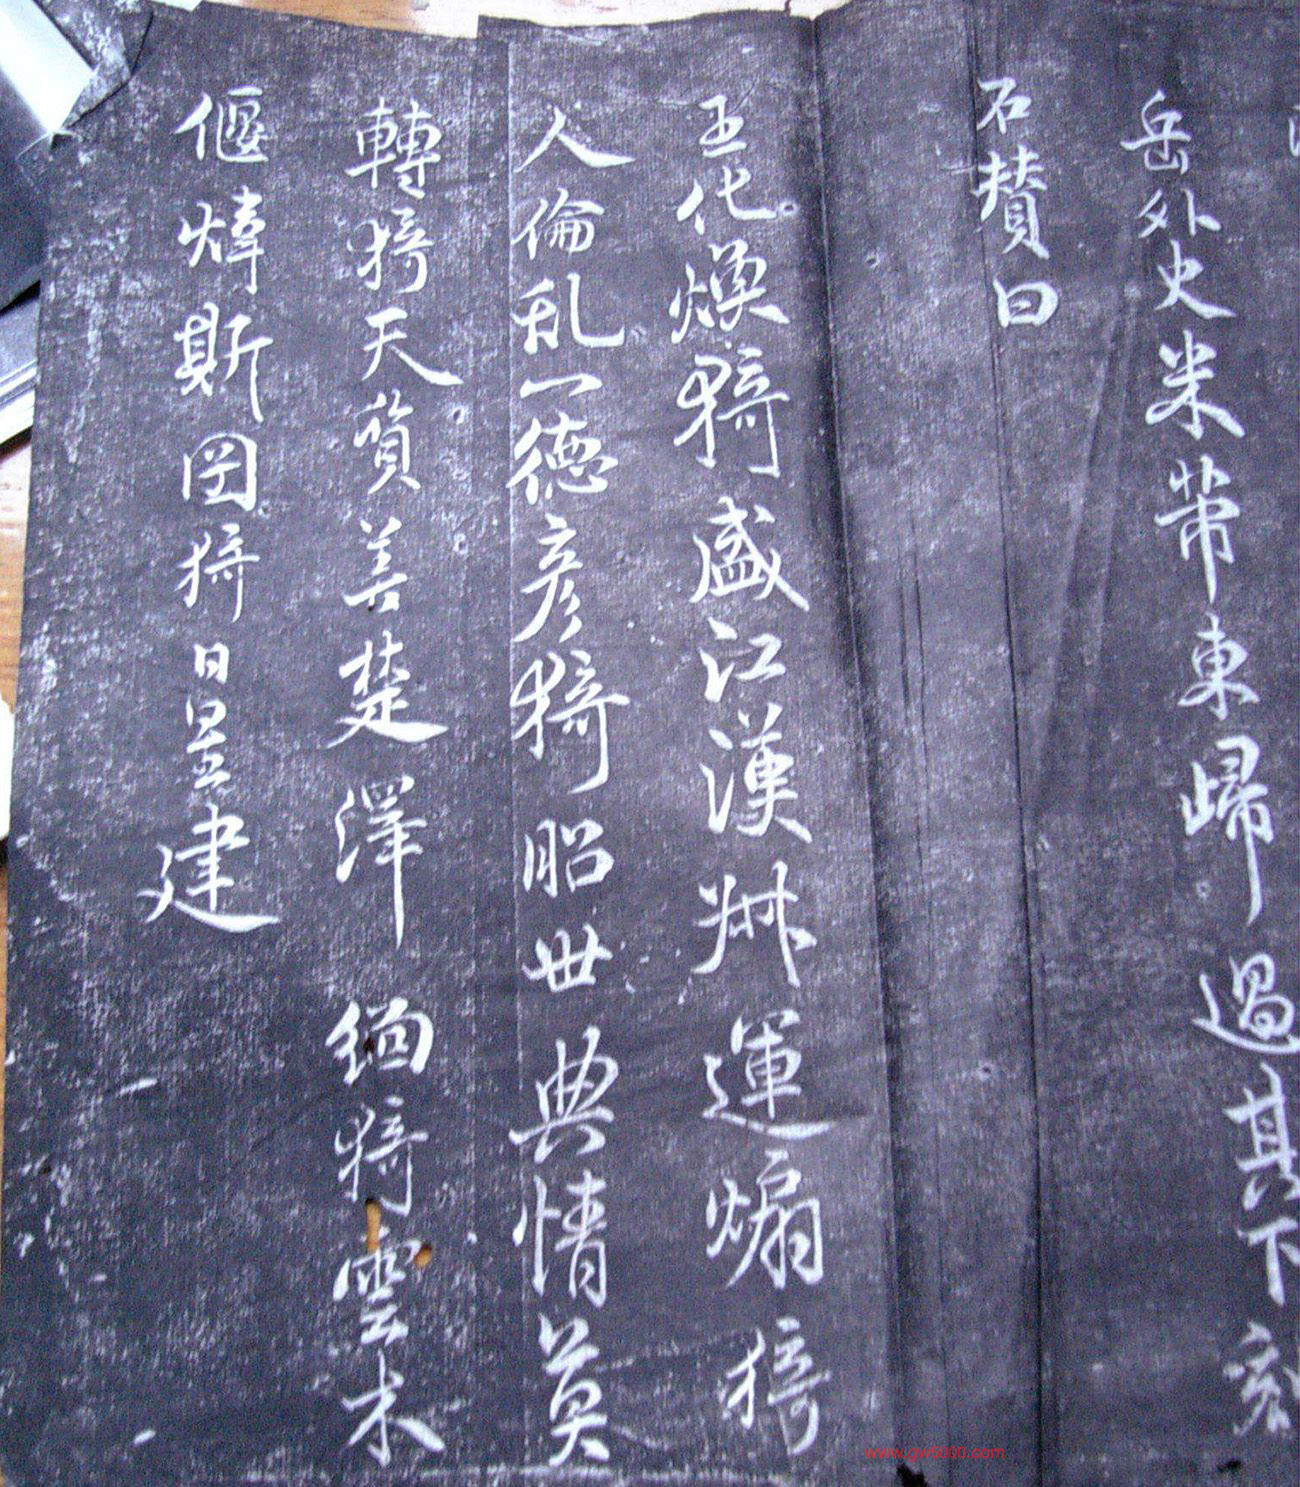 岳外史米芾東歸過其下刻
石贊曰
王化煥猗盛江漢叔運煽猗
人倫乱一德彦猗昭世典情莫
轉猗天質善楚澤緬猗雲木
偃煒斯猗日星建
www.gw5000.com